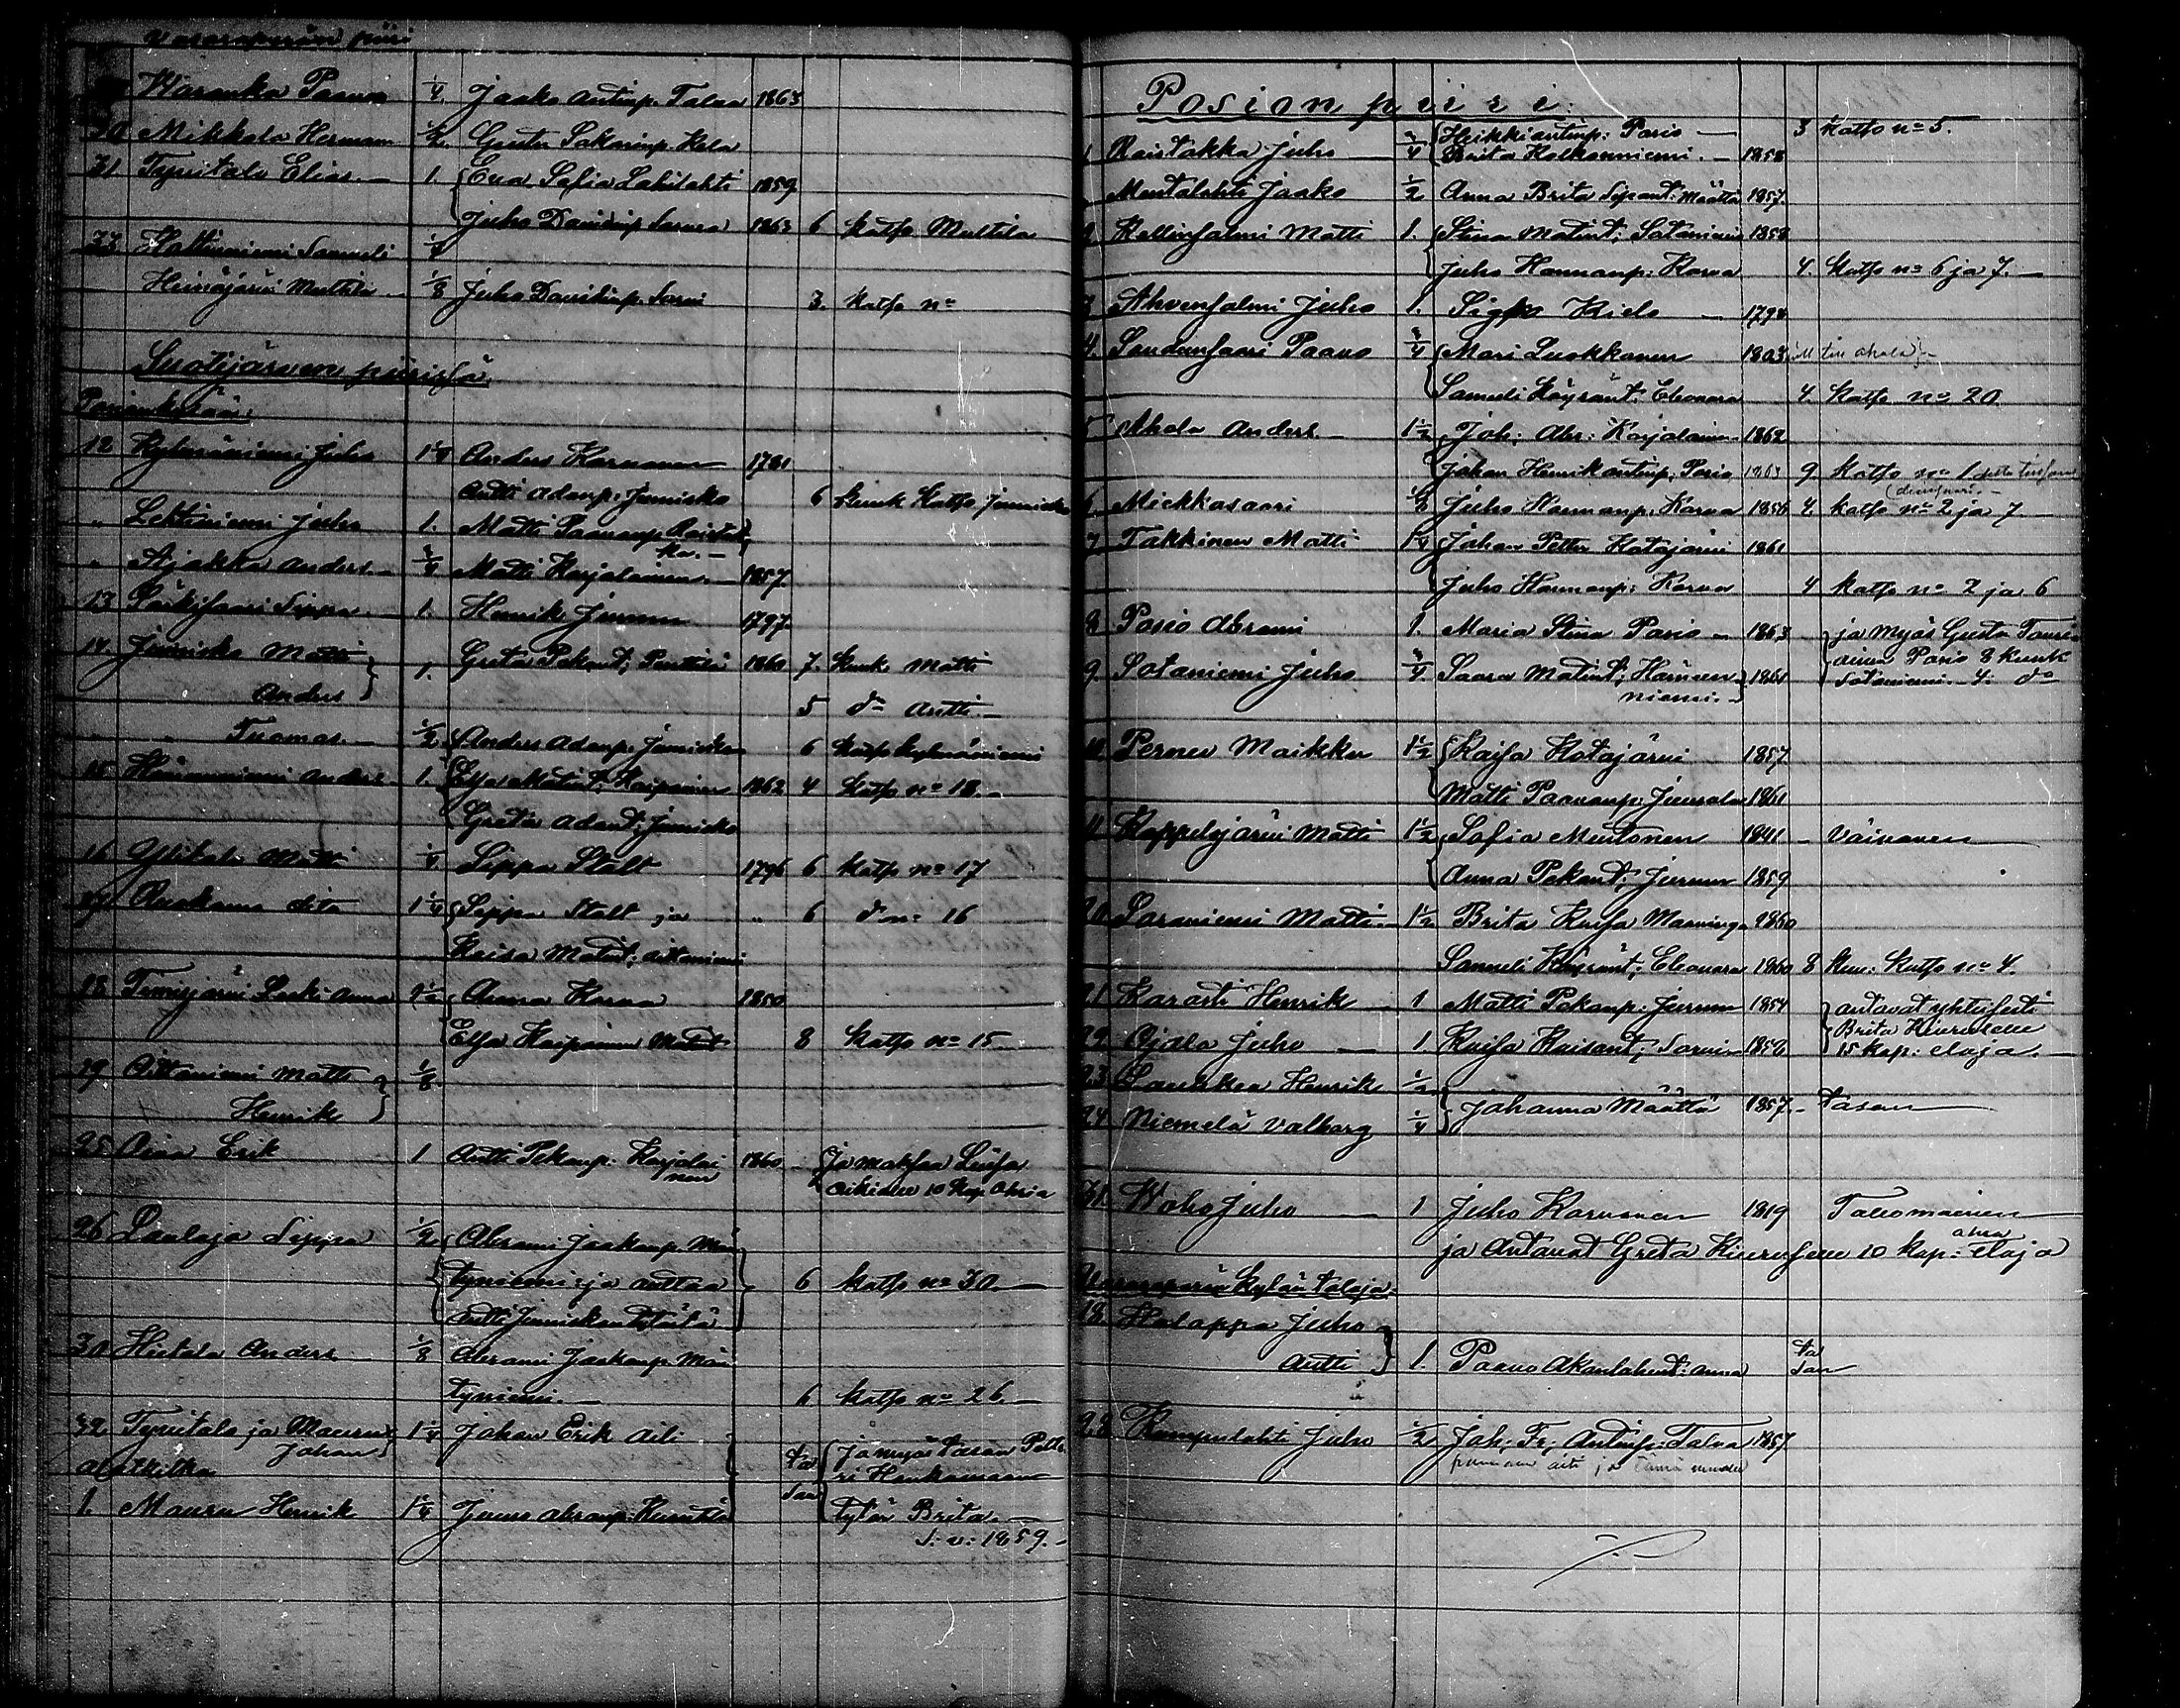 Vasaraperän piiri
Karanka Paavo 1/4. Jaako Antinp. Talva 1863
30 Mikkola Herman 1/2. Gusta Sakarinp. Kela
31 Tynitalo Elias. — 1. Eva Sofia Lahtilahti 1859
Juho Davidinp. Sarvi 1863 6 Katso Multila
33 Hattuniemi Samuli 1/4
Heinäjärvi Multila 1/8 Juho Davidinp. Sarvi 3. Katso no
Suolijärven piirissä
Posionkylää:
12 Kylmäniemi Juho 1 1/4 Anders Karnanen 1781
Antti Adamp. Jumisko 6 Kuuk Katso Jumisko
" Lehtiniemi Juho 1. Matti Paavonp. Raistakka. —
" Ajakka Anders. — 3/4 Matti Karjalainen. — 1857
13 Särkisaari Sippa 1. Henrik Jurmu 1797.
14 Jumisko Matti 1. Greta Pekant; Penttilä 1860 7. Kuuk Matti
Anders 5 do Antti. —
" " Tuomas. — 1/2 Anders Adamp. Jumisko 6 Katso Kylmäniemi
15 Hämeniemi Anders 1. Elsa Matint; Karpinen 1862 4 Katso no 18. —
Greta Adamt; Jumisko
16 Ylitalo Matti 1/4 Sippa Stålt 1796 6 Katso no 17
17 1 1/4 Sippa Stålt ja " 6 do no 16
Kaisa Matint; Aittaniemi
18 Timisjärvi Leski Anna 1 1/2 Anna Karva 1850
Elsa Karpinen Matint 8 Katso no 15 —
19 Aittaniemi Matti 1/8
Henrik
25 Oiva Erik 1 Antti Pekanp: Karjalainen 1860 — Ja maksaa Liisa
10 Kap. Ohria
26 Laulaja Sippa 1/2 Abrami Jaakonp. Mäntyniemi ja auttaa 6 Katso no 30. —
Antti Jumiskon tytölä
30 Hietala Anders 1/8 Abrami Jaakonp. Mäntyniemi. — 6 Katso no 26. —
32 Tynitalo ja Mauru Johan 1 1/4 Johan Erik Aili Ta san Ja myös tasan Petteri Henkamaan
Alakitka
1. Mauru Henrik 1 1/4 Junno Abramp: Kuusela tytön Brita. —
s: v: 1859. —
Posion piiri.
1 Raistakka Juho 3/4 Heikki Antinp: Posio — 3 Katso no 5.
Brita Kolkonniemi. — 1858
Mustalahti Jaako 1/2 Anna Brita Sipant: Määttä 1857.
2 Kallinsalmi Matti 1. Stina Matint; Sotaniemi 1858
Juho Hannanp: Karva 4. Katso no 6 ja 7. —
3 Ahvensalmi Juho 1. Sigfri Kiela — 1798
4. Saukunsaari Paavo 3/4 Mari Luokkanen 1803
Samuli Käyränt. Eleonora 4. Katso no 20
5 Ahola Anders. — 1 1/2 Joh: Abr: Karjalainen 1862
Johan Henrik Antinp; Posio 1863 9. Katso no 1
6. Mickkasaari 1/8 Juho Hannanp. Karva 1856 4. Katso no 2 ja 7. —
7 Takkinen Matti 1 1/4 Johan Petter Kotajärvi 1861
Juho Hannanp: Karva 4 Katso no 2 ja 6
8 Posio Abrami 1. Maria Stina Posio — 1863 ja myös Gusta Tauriainen Posio 8 kuuk
9. Sotaniemi Juho 3/4 Saara Matint; Hämeenniemi. — 1861 Sotaniemi. 4: do
10 Pernu Maikku 1 1/2 Kaisa Kotajärvi 1857
Matti Paavonp: Juusola 1861
11 Kappelsjärvi Matti 1 1/2 Sofia Mustonen 1841. — Väinönen
Anna Pekant; Jurmu 1859
20 Soraniemi Matti. — 1 1/2 Brita Kaisa Manninga 1860
Samuli Käyränt; Eleonora 1860 8 Kuu: Katso no 4.
21 Karasti Henrik — 1 Matti Pekanp: Jurmu 1854 antavat yhteisesti
22 Ojala Juho — 1. Kaisa Kaisant; Sarvi — 1856 Brita Kiverälle
15 Kap: eloja. —
23 Laukka Henrik 1/2 Johanna Määttä 1857. — tasan
24 Niemelä Valborg 1/4
31 Woho Juho — 1 Juho Karnanen 1819 Talomainen
ja Antavat Greta 10 Kap: ohra eloja
Vasaraperän kylän taloja:
18 Holappa Juho 1. Paavo Akanlahent: Anna ta san
Antti
28 Kumpulahti Juho 1/2 Joh: Fr; Antinp: Talva 1857